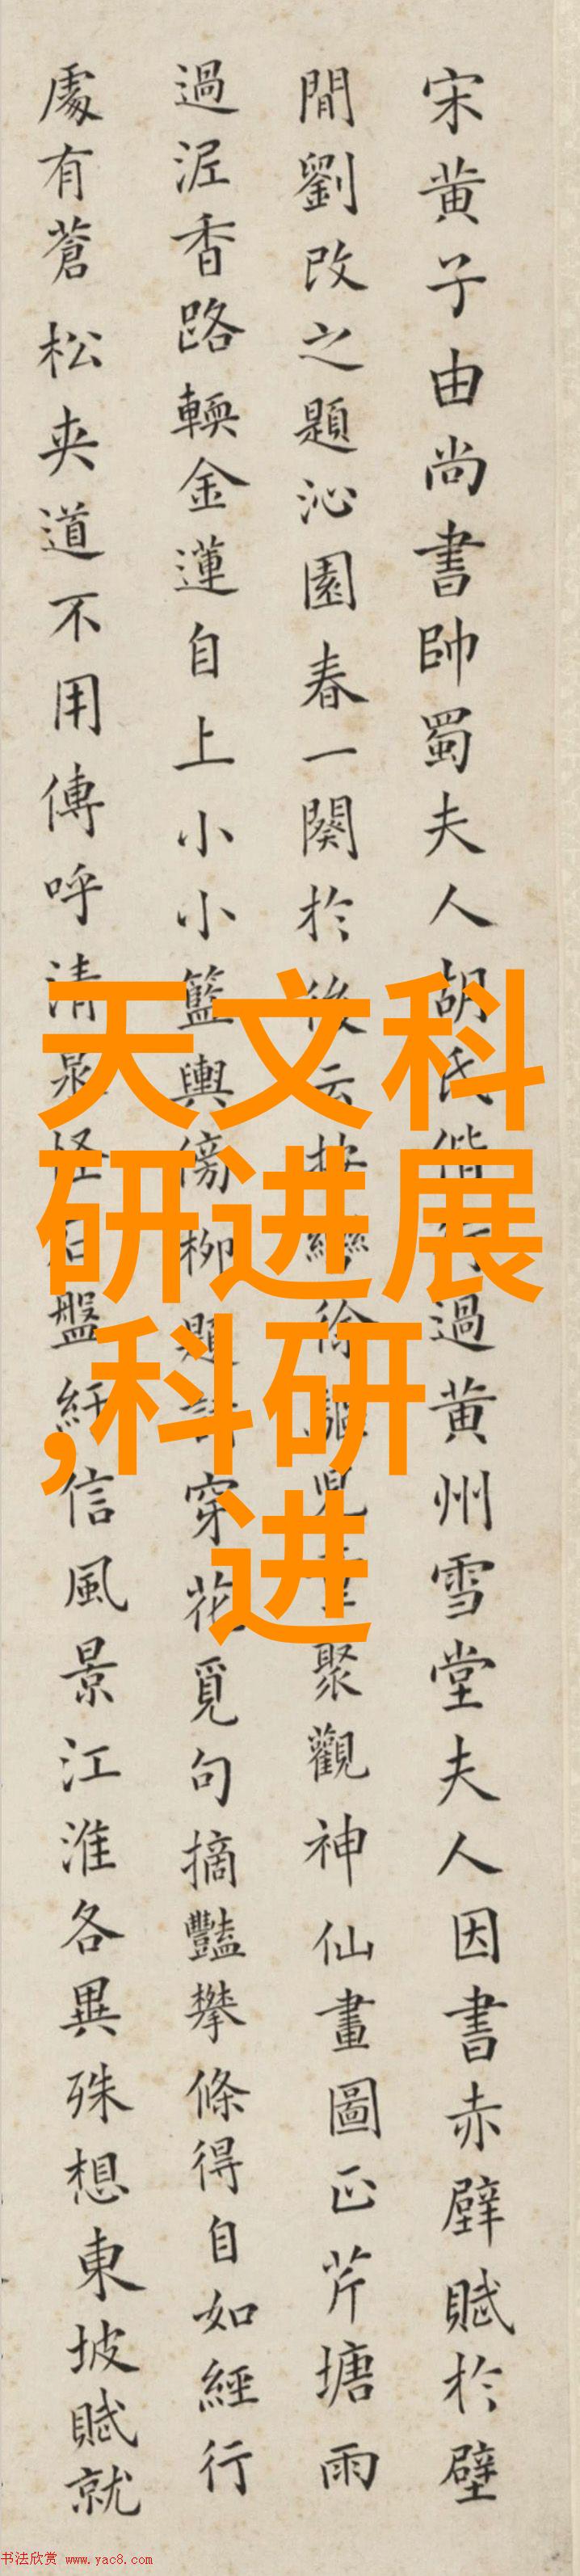 宋黄子由尚書帥蜀夫人胡氏偕行過黄州雪堂夫人因書赤壁賦於壁
間劉改之題沁園春一闋於後云按轡徐驅兒童聚觀神仙畫圖正芹塘雨
過泥香路輭金蓮自上小小籃輿傍柳題詩穿花覓句摘豔攀條得自如經行
處有蒼松夾道不用傳呼清泉怪石盤紆信風景江淮各異殊想東坡賦就
天文科
研进展
,科研
进
书法欣赏 www.yac8.com